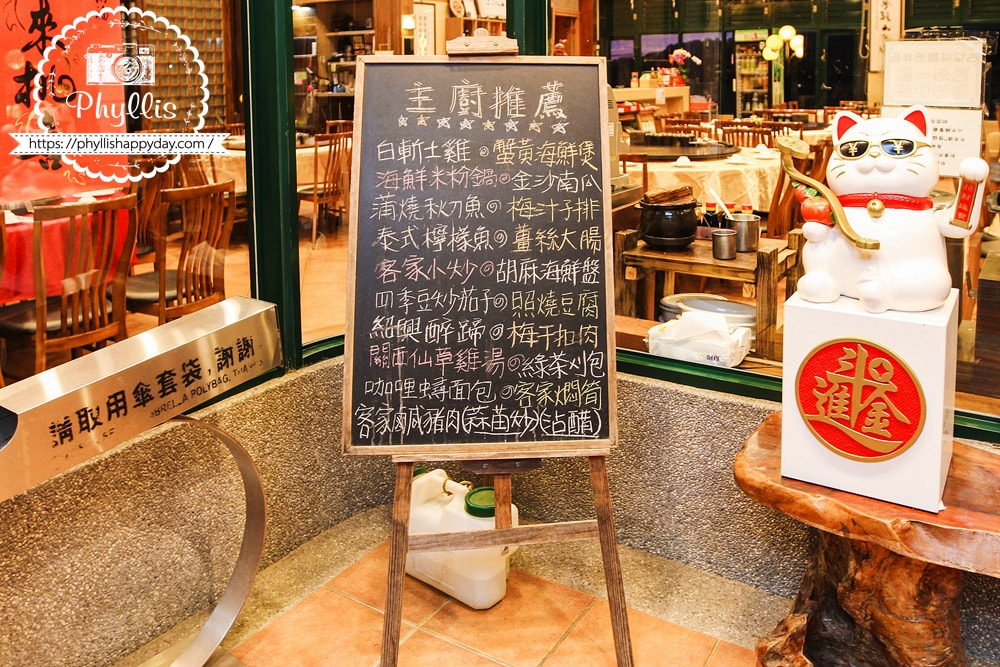 Phyllis
https://phyllishappyday.com/
主廚推薦
白斬土雞◎蟹黃海鮮煲
海鮮米粉鍋◎金沙南瓜
蒲燒秋刀魚◎梅汁子排
泰式檸檬魚◎薑絲大腸
客家小炒◎胡麻海鮮盤
四季豆炒茄子◎照燒豆腐
紹興醉蹄◎梅干扣肉
關西仙草雞湯◎綠茶刈包
咖哩蟳面包◎客家燜筍
客家鹹豬肉(蒜苗炒)(沾醋)
請取用傘套袋,謝謝
日進斗金